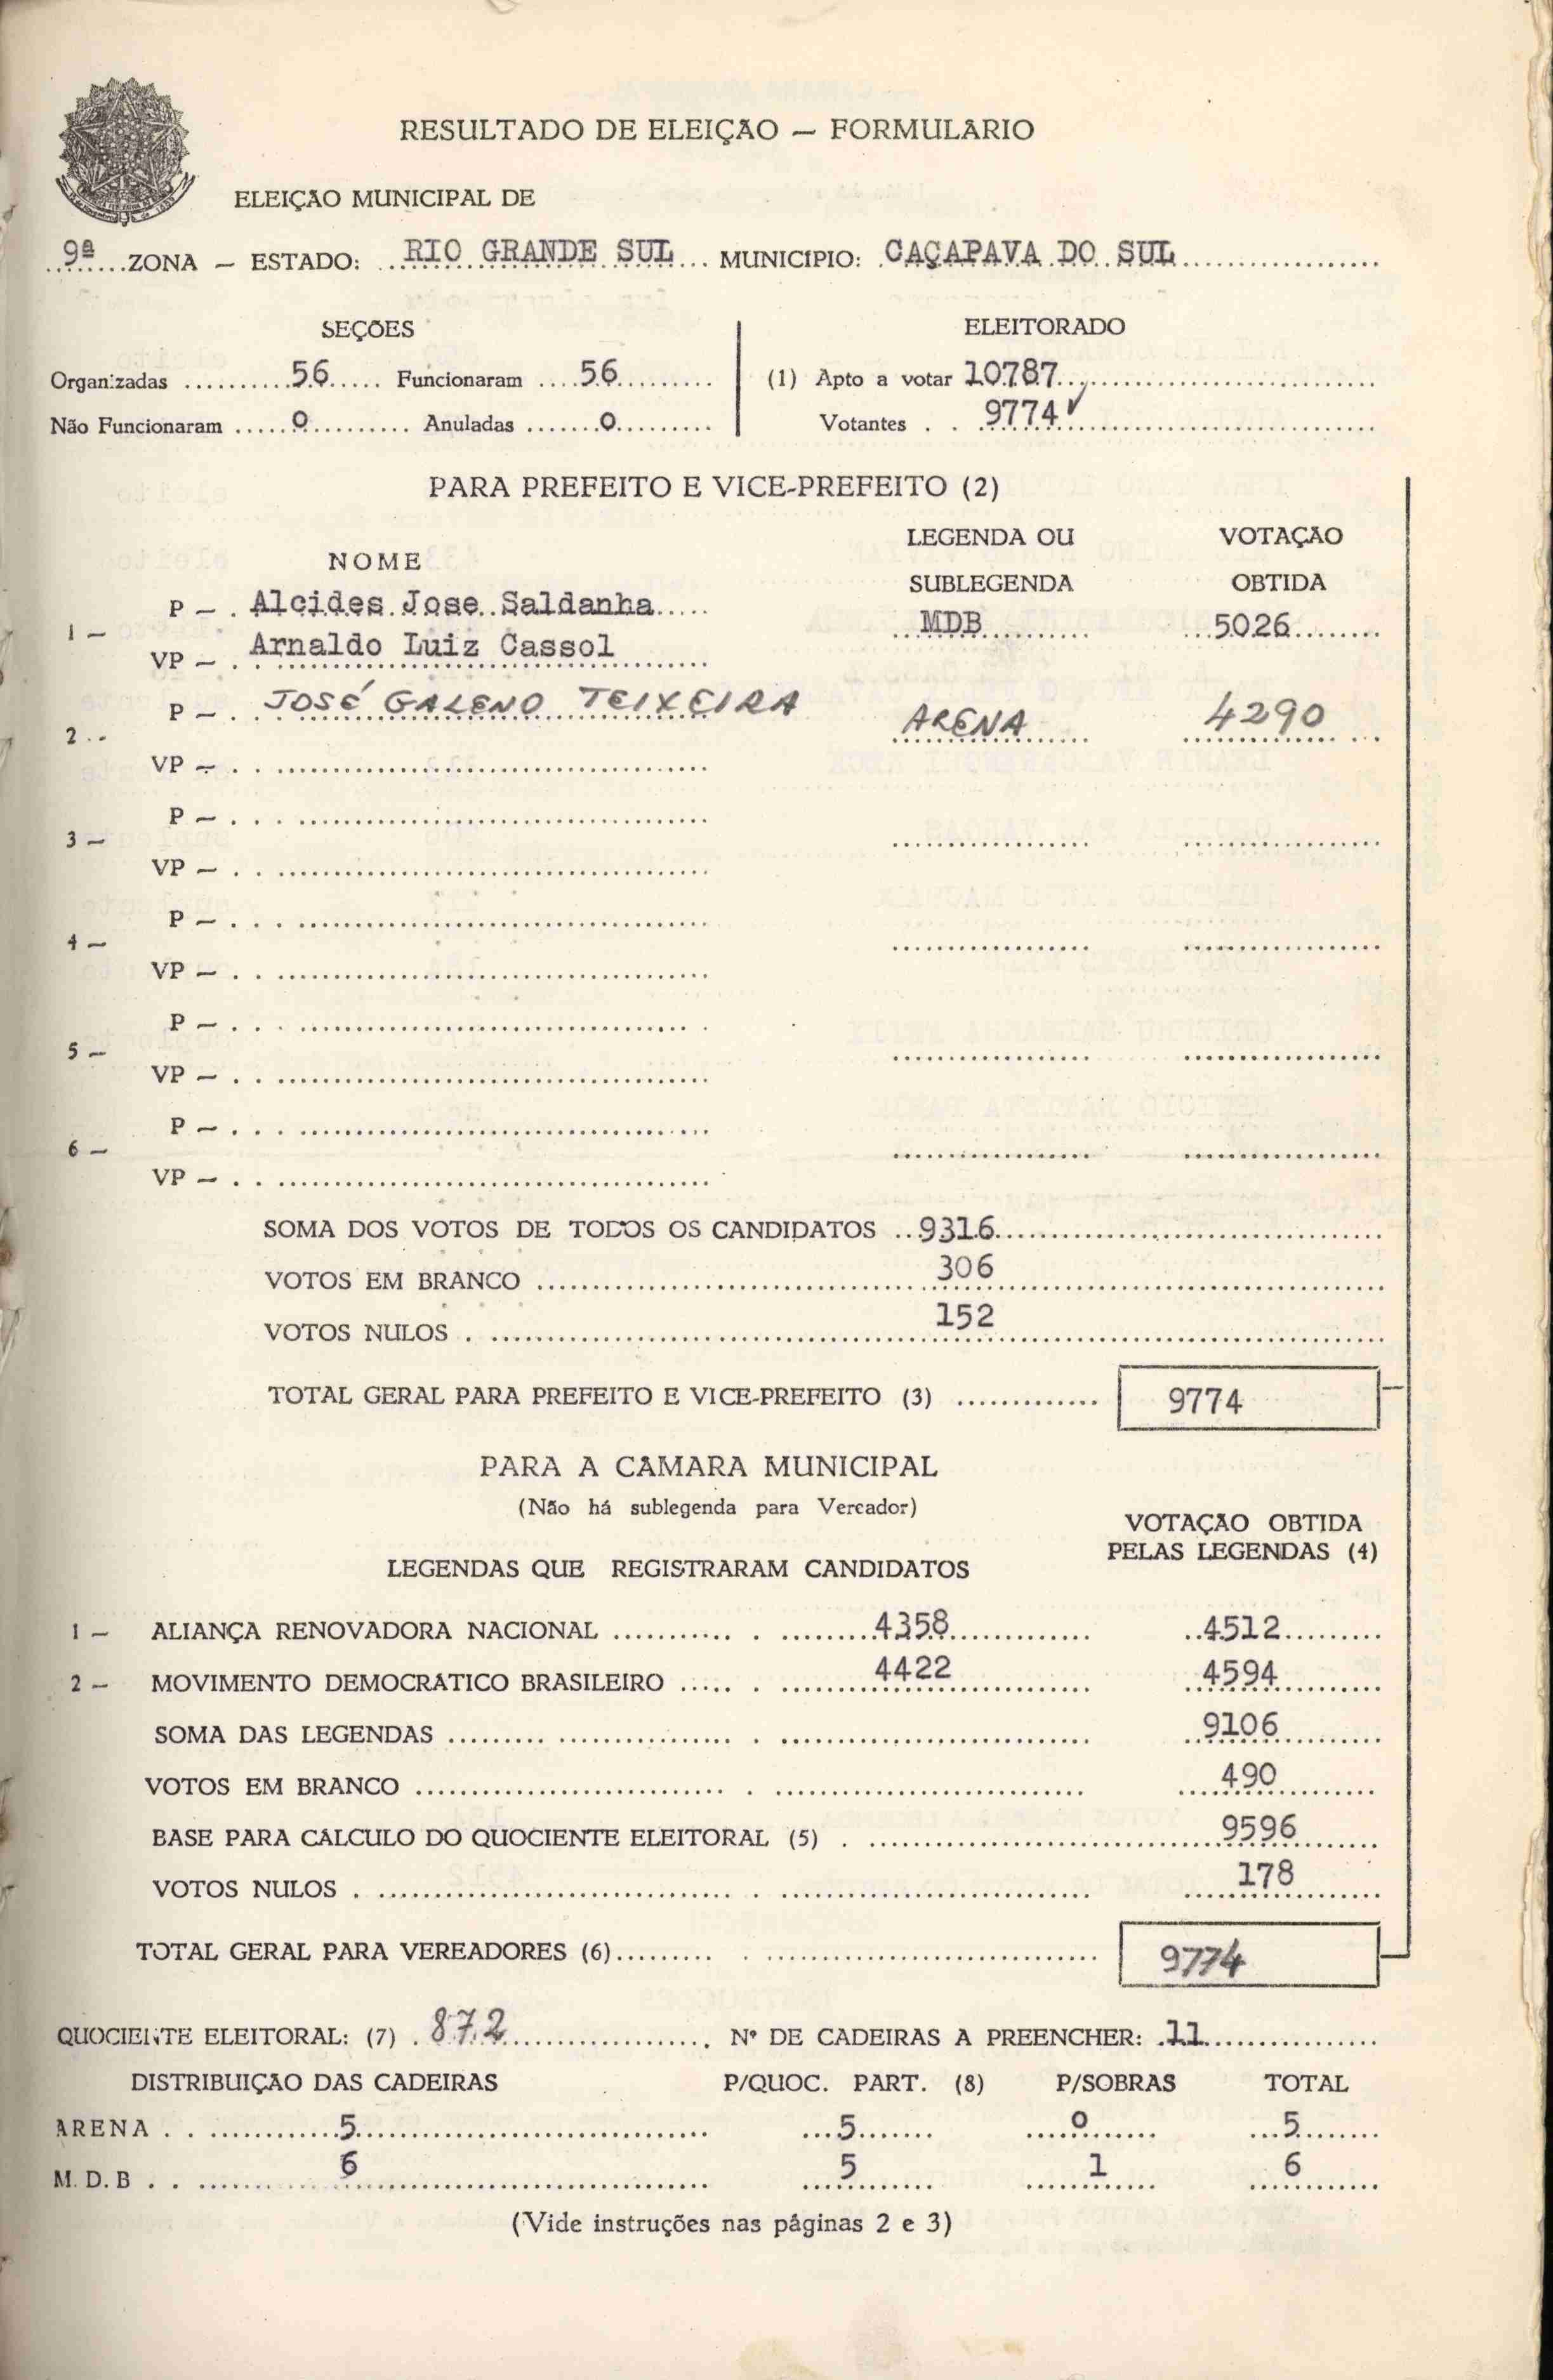 RESULTADO DE ELEIÇÃO — FORMULÁRIO
ELEIÇÃO MUNICIPAL DE
9ª ZONA — ESTADO: RIO GRANDE SUL MUNICÍPIO: CAÇAPAVA DO SUL
SEÇÕES ELEITORADO
Organizadas 56 Funcionaram 56 (1) Apto a votar 10787
Não Funcionaram 0 Anuladas 0 Votantes 9774
PARA PREFEITO E VICE-PREFEITO (2)
NOME LEGENDA OU SUBLEGENDA VOTAÇÃO OBTIDA
1 — P — Alcides Jose Saldanha MDB 5026
VP — Arnaldo Luiz Cassol
2 — P — JOSÉ GALENO TEIXEIRA ARENA 4290
VP —
3 — P —
VP —
4 — P —
VP —
5 — P —
VP —
6 — P —
VP —
SOMA DOS VOTOS DE TODOS OS CANDIDATOS 9316
VOTOS EM BRANCO 306
VOTOS NULOS 152
TOTAL GERAL PARA PREFEITO E VICE-PREFEITO (3) 9774
PARA A CÂMARA MUNICIPAL
(Não há sublegenda para Vereador)
VOTAÇÃO OBTIDA
PELAS LEGENDAS (4)
LEGENDAS QUE REGISTRARAM CANDIDATOS
1 — ALIANÇA RENOVADORA NACIONAL 4358 4512
2 — MOVIMENTO DEMOCRÁTICO BRASILEIRO 4422 4594
SOMA DAS LEGENDAS 9106
VOTOS EM BRANCO 490
BASE PARA CÁLCULO DO QUOCIENTE ELEITORAL (5) 9596
VOTOS NULOS 178
TOTAL GERAL PARA VEREADORES (6) 9774
QUOCIENTE ELEITORAL: (7) 872 Nº DE CADEIRAS A PREENCHER: 11
DISTRIBUIÇÃO DAS CADEIRAS P/QUOC. PART. (8) P/SOBRAS TOTAL
ARENA 5 5 0 5
M.D.B 6 5 1 6
(Vide instruções nas páginas 2 e 3)